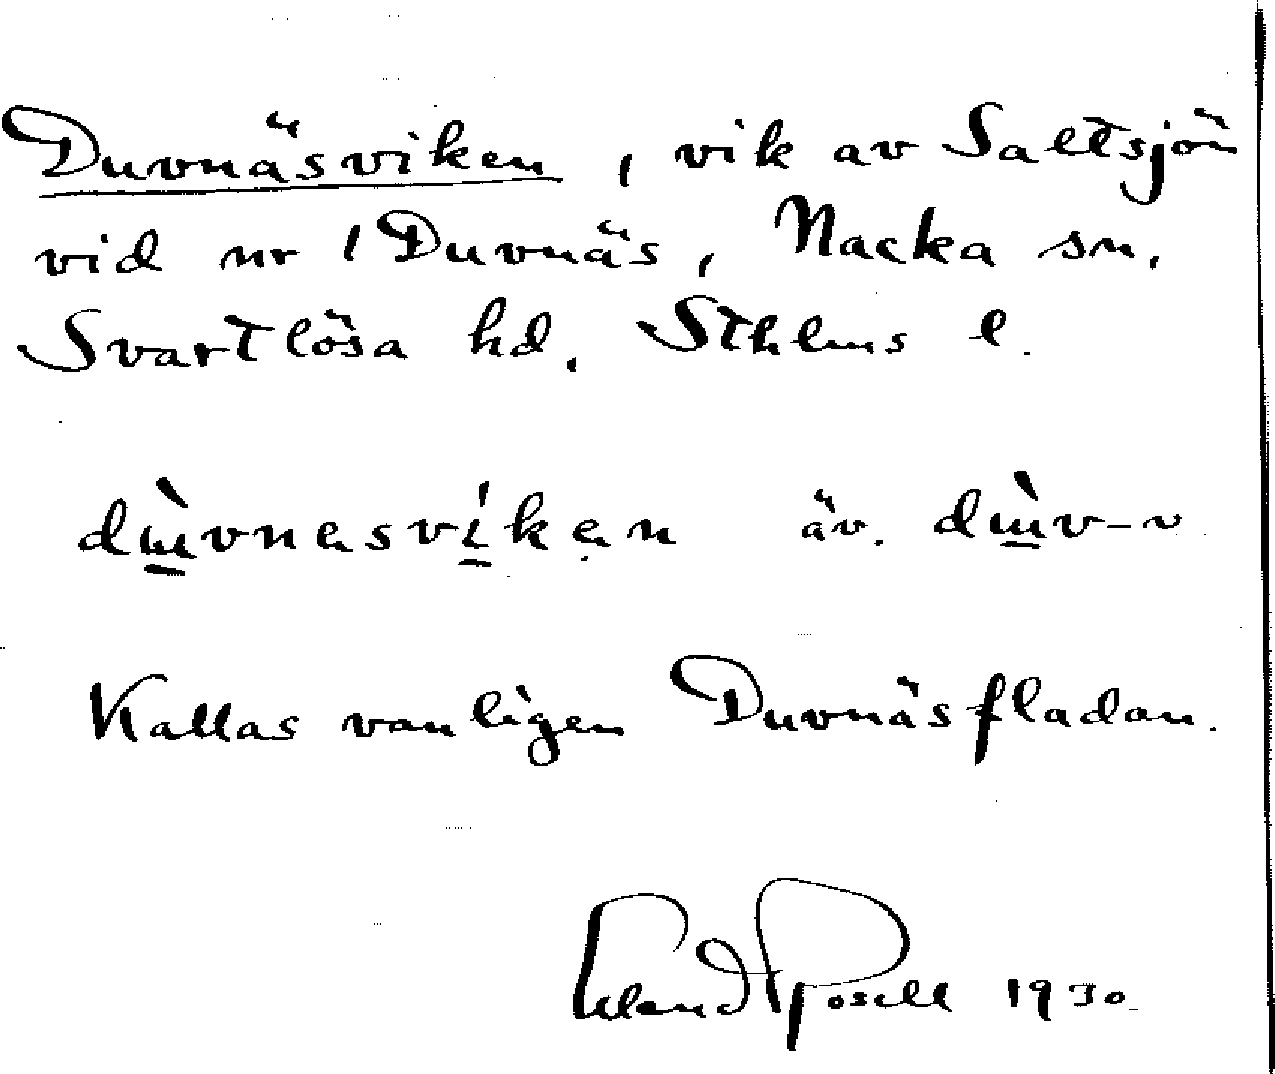 Duvnäsviken, vik av Saltsjön
vid nr 1 Duvnäs, Nacka sn.
Svartlösa hd. Sthlms l.
dɯ̀vnesvíken äv. dɯ̀v-v
Kallas vanligen Duvnäsfladan.
Erland Rosell 1930